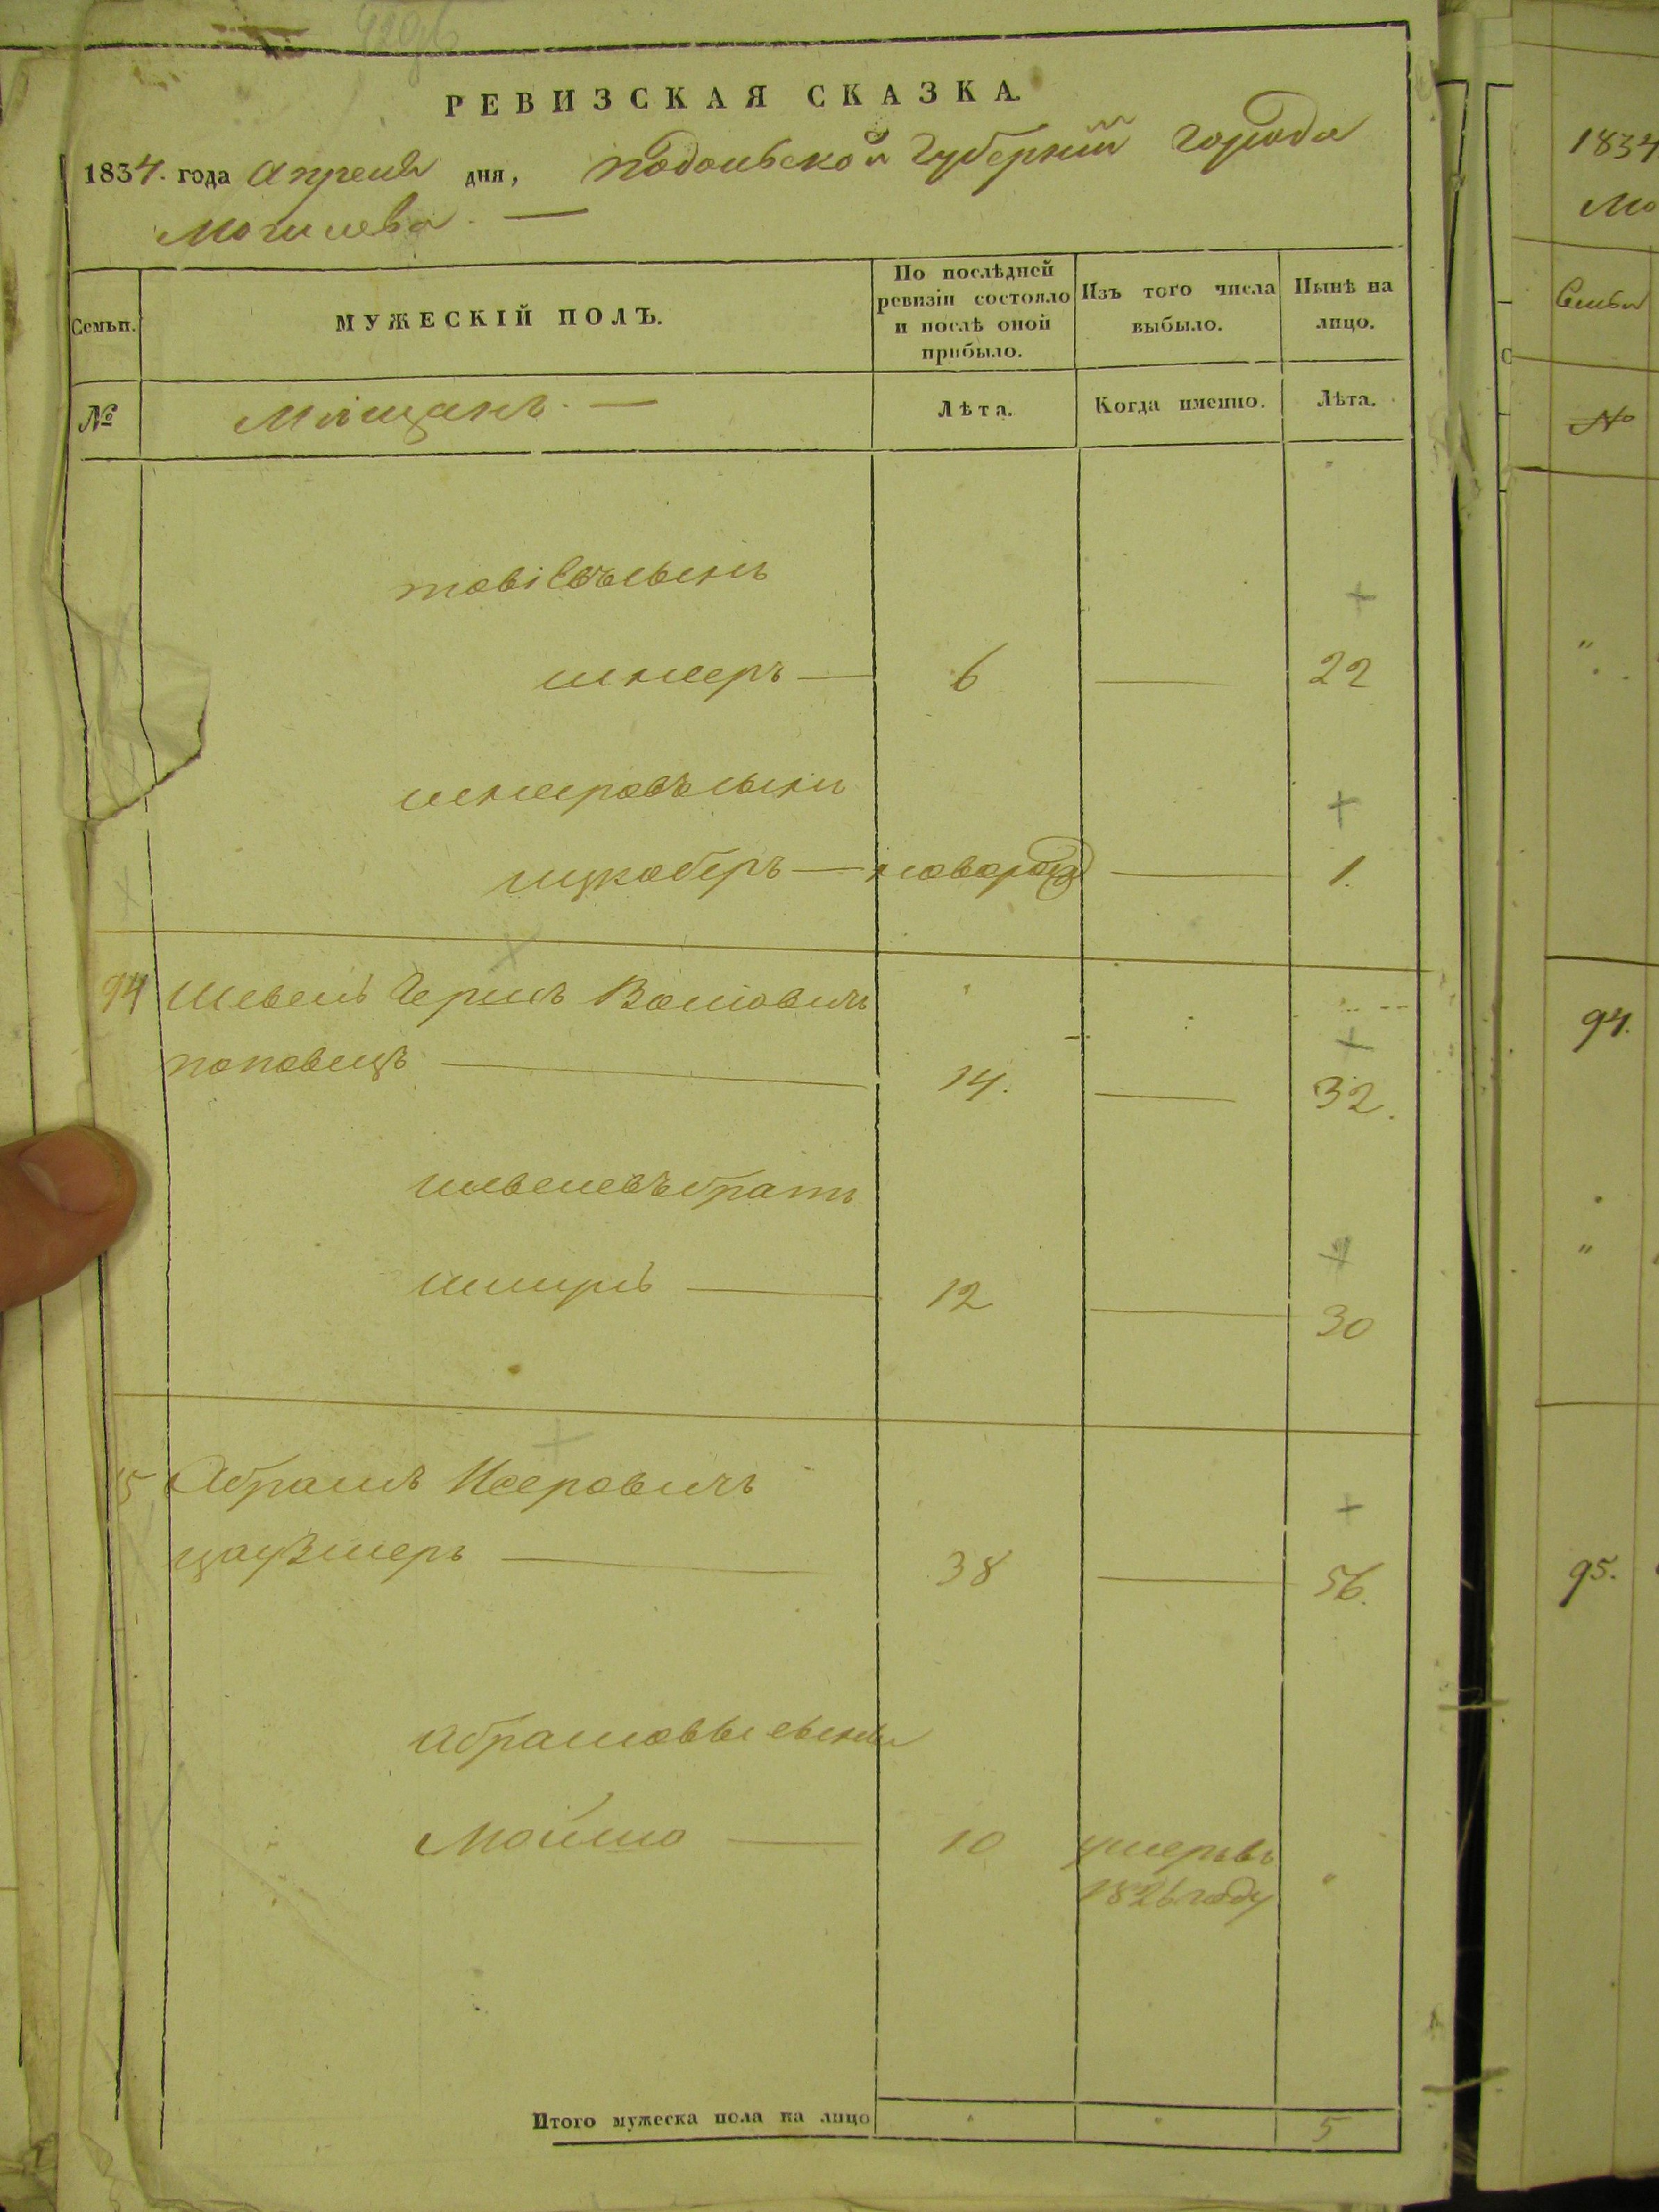 РЕВИЗСКАЯ СКАЗКА.
1834. года Апреля дня, Подольской Губернiи города
Могилева. —
Семьи.
МУЖЕСКIЙ ПОЛЪ.
По послѣдней ревизiи состояло и послѣ оной прибыло.
Изъ того числа выбыло.
Нынѣ на лицо.
№
Мѣщанъ. —
Лѣта.
Когда именно.
Лѣта.
сынъ
6 — 22
сынъ
ицкоберъ — новорож — 1.
94 Шевель Гершъ Волiовичъ
поповецъ — 14. — 32.
шевелевъ братъ
шмуль — 12 — 30
5 Абрамъ Иосеровичъ
цаузмеръ — 38 — 56.
абрамовы сыны
Мойшо — 10 умеръ въ
1826 году
Итого мужеска пола на лицо 5
1834
Мо
Семьи
№
94.
95.